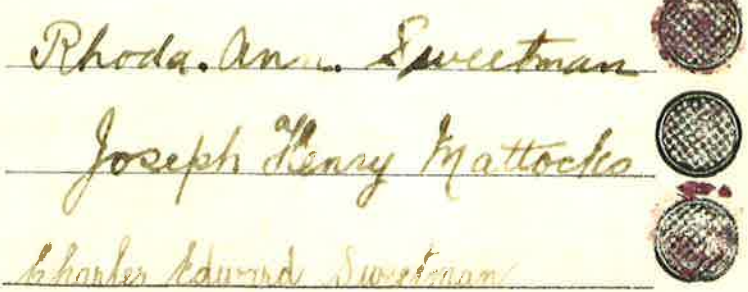 Rhoda. Ann. Sweetman
Joseph Henry Mattocks
Charles Edward Sweetman